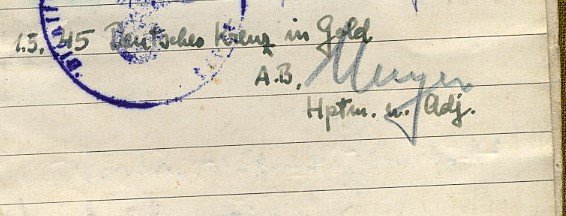 1.5.45 Deutsches Kreuz in Gold
A.B. Meyer
Hptm. u. Adj.